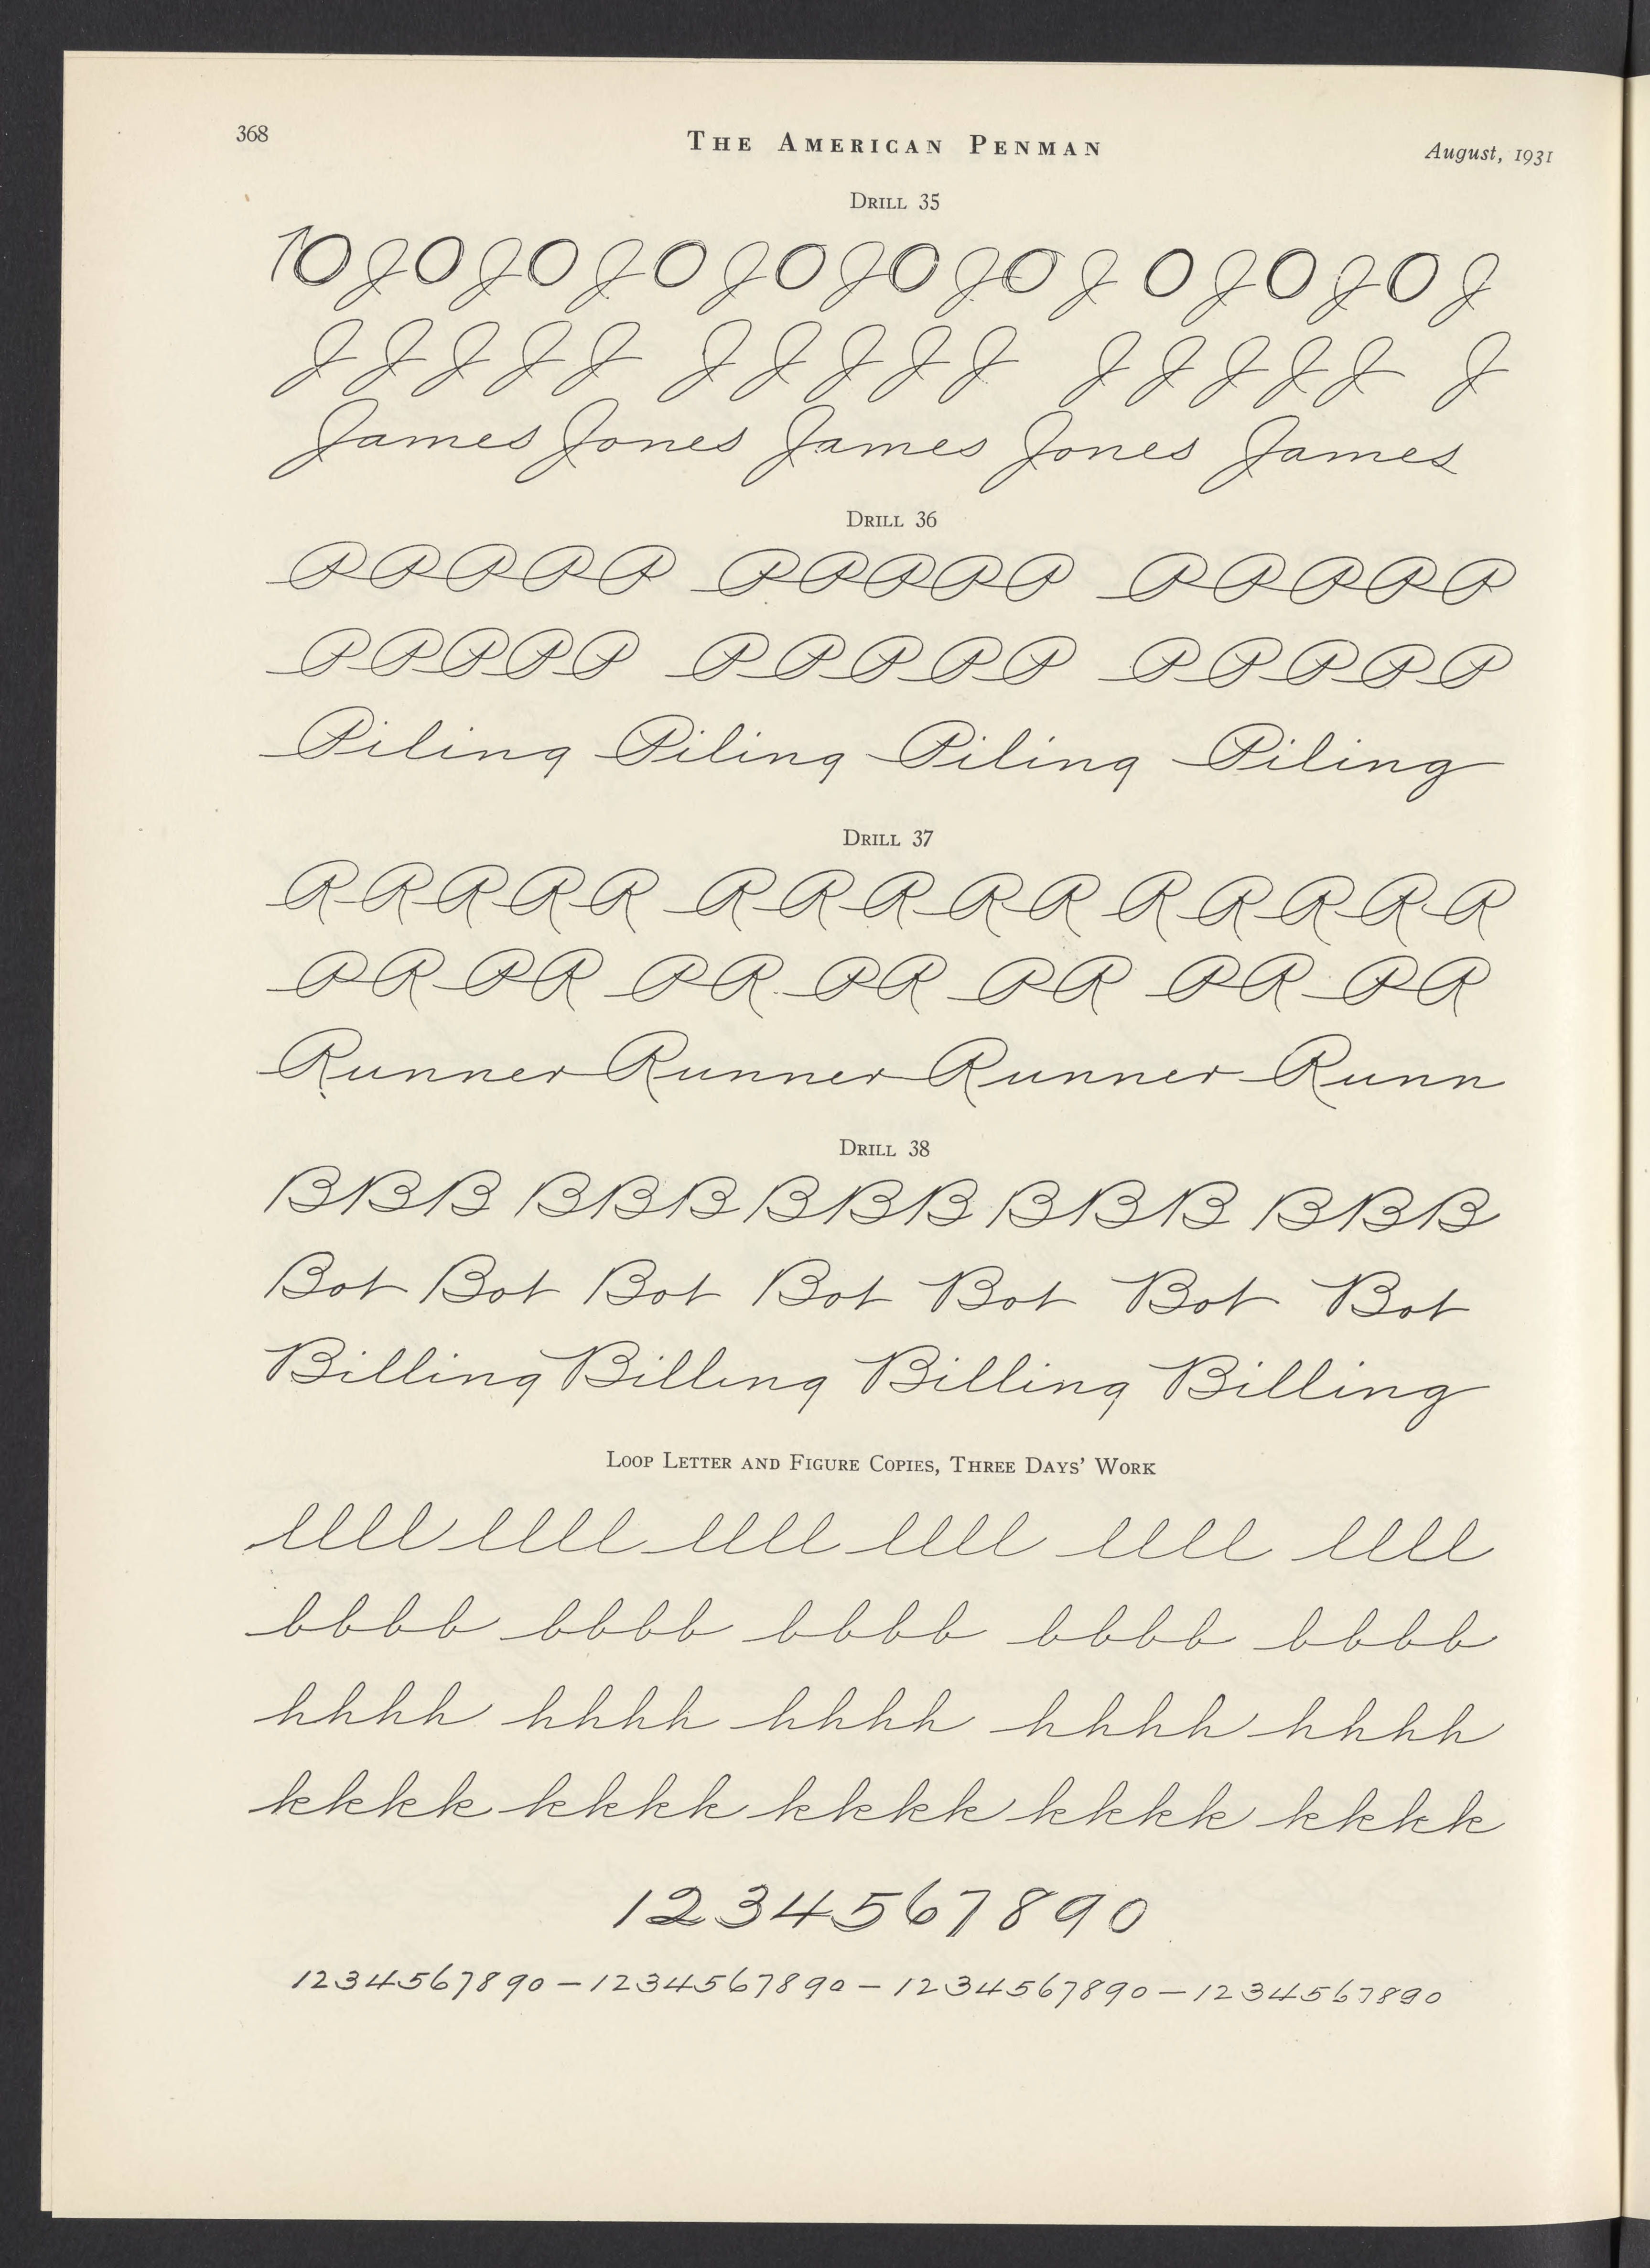 368
THE AMERICAN PENMAN
August, 1931
DRILL 35
10 J O J O J O J O J O J O J O J O J O J
J J J J J J J J J J J J J J J J
James Jones James Jones James
DRILL 36
P P P P P P P P P P P P P P P
P P P P P P P P P P P P P P P
Piling Piling Piling Piling
DRILL 37
R R R R R R R R R R R R R R R
P R P R P R P R P R P R P R
Runner Runner Runner Runn
DRILL 38
BBB BBB BBB BBB BBB
Bot Bot Bot Bot Bot Bot Bot
Billing Billing Billing Billing
LOOP LETTER AND FIGURE COPIES, THREE DAYS' WORK
llll llll llll llll llll llll
bbbb bbbb bbbb bbbb bbbb
hhhh hhhh hhhh hhhh hhhh
kkkk kkkk kkkk kkkk kkkk
1234567890
1234567890 – 1234567890 – 1234567890 – 1234567890